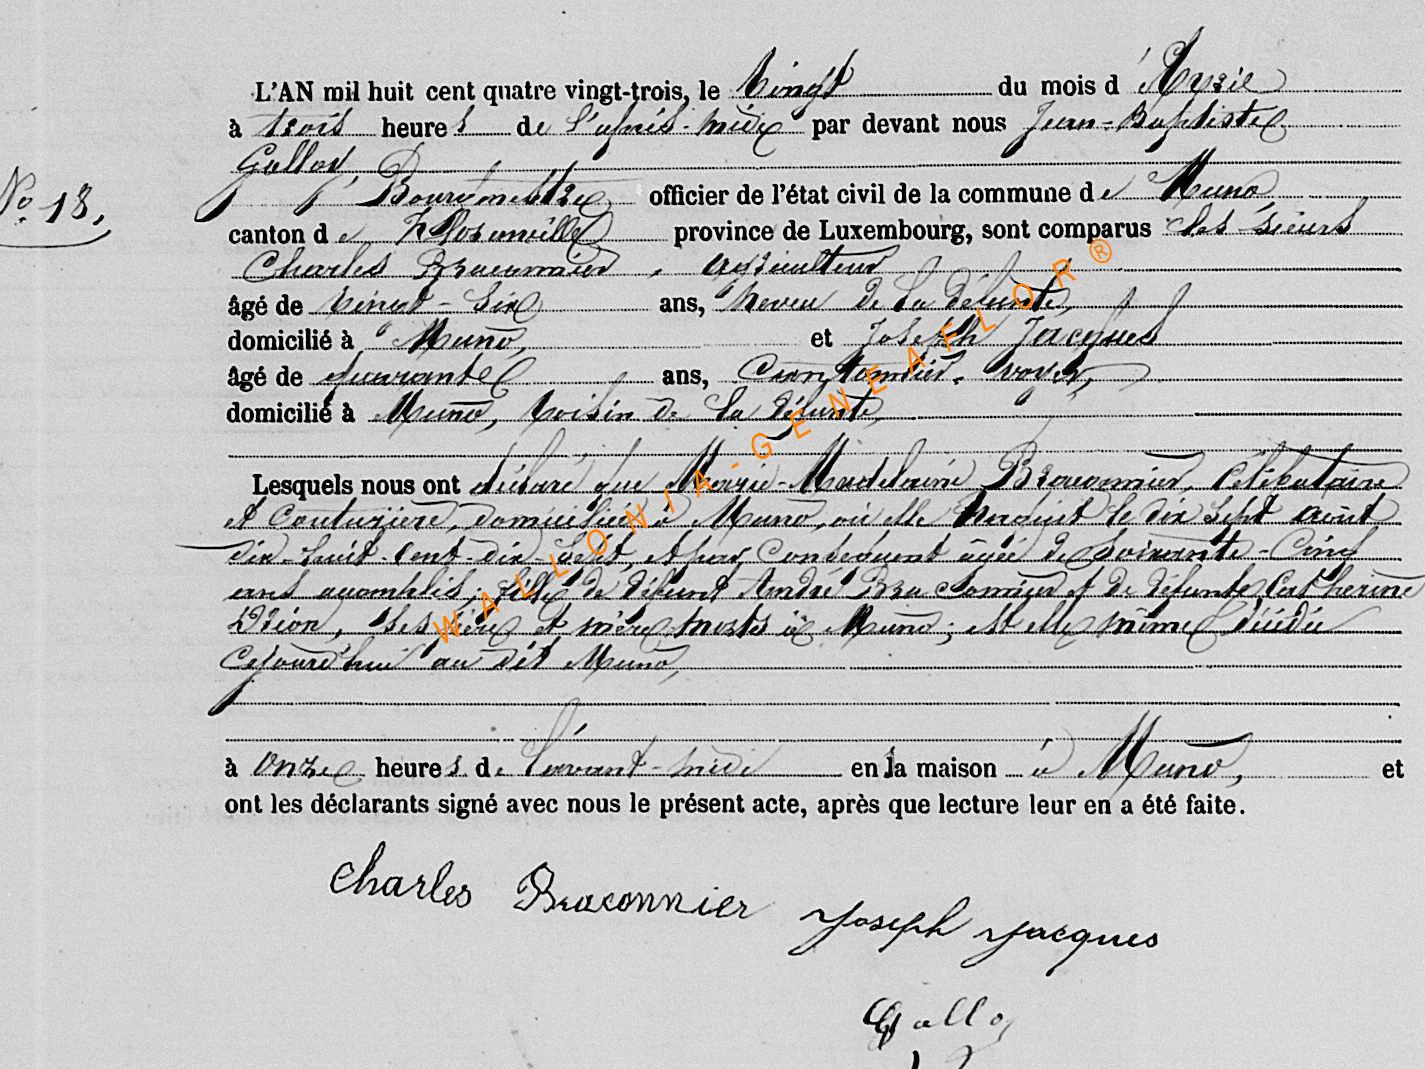 L'AN mil huit cent quatre vingt-trois, le Vingt du mois d'Avril
à trois heures de l'après-midi par devant nous Jean-Baptiste
N° 18.
Bourgmestre officier de l'état civil de la commune de Muno
canton de Florenville province de Luxembourg, sont comparus les sieurs
Charles Braconnier, agriculteur
âgé de vingt-six ans, neveu de la défunte,
domicilié à Muno, et Joseph Jacques
âgé de quarante ans, Cantonnier-voyer,
domicilié à Muno, voisin de la défunte,
Lesquels nous ont déclaré que Marie-Madelaine Braconnier, célibataire
et couturière, domiciliée à Muno, où elle naquit le dix sept août
dix-huit-cent-dix-sept, et par conséquent âgée de soixante-cinq
ans accomplis, fille de défunt André Braconnier et de défunte Catherine
ses père et mère morts à Muno; est elle même décédée
cejourd'hui au dit Muno,
à onze heures de l'avant-midi en la maison à Muno, et
ont les déclarants signé avec nous le présent acte, après que lecture leur en a été faite.
Charles Braconnier Joseph Jacques
WALLONIA-GENEAFLOR®